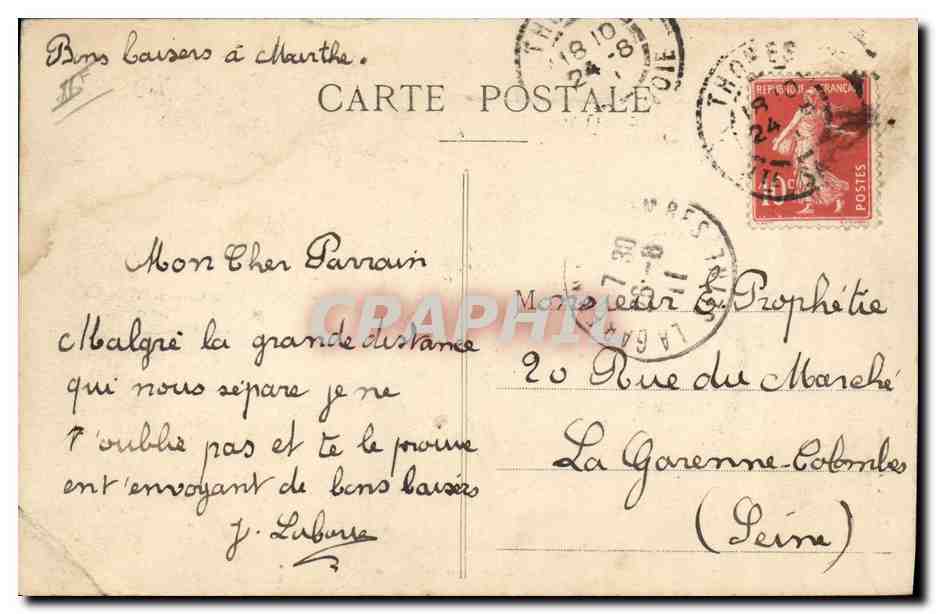 Bons baisers à Marthe.
II F
CARTE POSTALE
THO
18 10
24 -8
OIE
THONES
18
24
REPUBLIQUE FRANÇA
10 c
POSTES
Mon Cher Parrain
Malgré la grande distance
qui nous sépare je ne
t'oublie pas et te le prouve
ent'envoyant de bons baisers
J. Labarre
7 30
-8
11
LA GAR
CRAPHIL
Monsieur E. Prophétie
20 Rue du Marché
La Garenne-Colombes
(Seine)